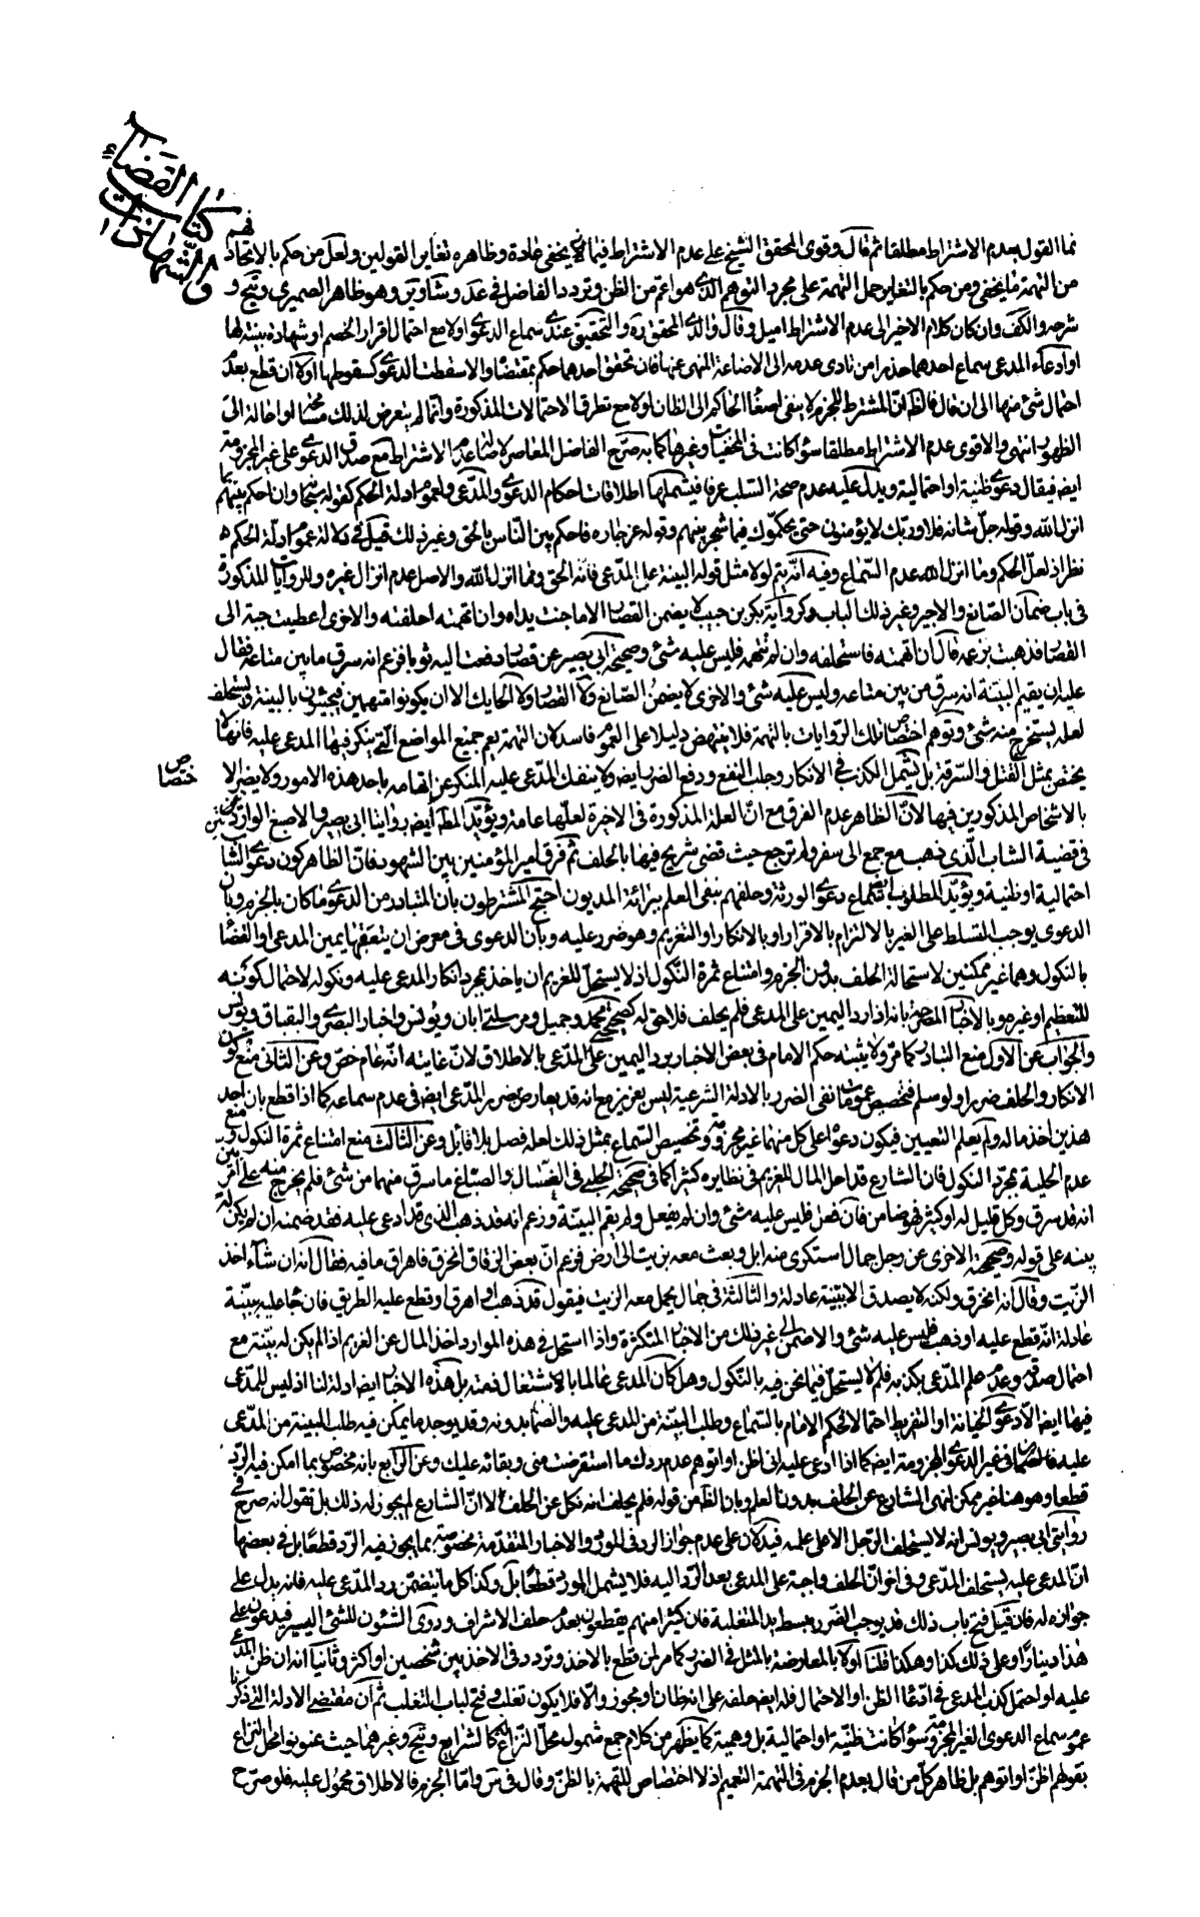 كتاب القضاء
والشهادات
فهم
نما القول بعدم الاشتراط مطلقا ثم قال وقوى المحقق الشيخ على عدم الاشتراط فيما يخفى عادة وظاهره تغاير القولين ولعل من حكم بالاتحاد
من التهمة ما يخفى ومن حكم بالتغاير حمل التهمة على مجرد التوهم الذى هو اعم من الظن وتردد الفاضل فى عد وشاوين وهو ظاهر الصميرى وتبح و
شرحه والكف وان كان كلام الاخير الى عدم الاشتراط اميل وقال والدى المحقق ره والتحقيق عندى سماع الدعوى اولا مع احتمال اقرار الخصم او شهادة بينة لها
او ادعاء المدعى سماع احدهما حذرا من تادى عدمه الى الاضاعة المنهى عنها فان تحقق احدهما حكم بمقتضاه والا سقطت الدعوى كسقوطها اولا ان قطع بعدم
احتمال شئ منها الى ان قال فالظ ان المشترط للجزم لا ينفى اصغاء الحاكم الى الظان اولا مع تطرق الاحتمالات المذكورة وانما لم يتعرض لذلك احالة الى
الظهور انتهى والاقوى عدم الاشتراط مطلقا سواء كانت فى المخفيات وغيرها كما به صرح الفاضل المعاصر لاصالة عدم الاشتراط مع صدق الدعوى على غير المجزومة
ايض فيقال دعوى ظنية او احتمالية ويدل عليه عدم صحة السلب عرفا فيشملها اطلاقات احكام الدعوى والمدعى ولعموم ادلة الحكم كقوله سبحانه وان احكم بينهم بما
انزل الله وقوله جل شانه فلا وربك لا يؤمنون حتى يحكموك فيما شجر بينهم وقوله عز جاره فاحكم بين الناس بالحق وغير ذلك قيل فى دلالة عموم ادلة الحكم ه
نظر اذ لعل الحكم وما انزل الله عدم السماع وفيه انه يتم لولا مثل قوله البينة على المدعى فانه الحق ومما انزل الله والاصل عدم انزال غيره وللروايات المذكورة
فى باب ضمان الصايغ والاجير وغير ذلك الباب كرواية بكر بن حبيب لا يضمن القصار الا ما جنت يداه وان اتهمته احلفته والاخرى اعطيت جبة الى
القصار فذهبت بزعمه قال ان اتهمته فاستحلفه وان لم تتهمه فليس عليه شئ وصحيحة ابى بصير عن قصار دفعت اليه ثوبا فزعم انه سرق ما بين متاعه فقال
عليه ان يقيم البينة انه سرق من بين متاعه وليس عليه شئ والاخرى لا يضمن الصائغ ولا القصار ولا الحايك الا ان يكونوا متهمين فيجيئون بالبينة ويستحلف
لعله يستخرج منه شئ وتوهم اختصاص تلك الروايات بالتهمة فلا ينتهض دليلا على العموم فاسد لان التهمة يعم جميع المواضع التى ينكر فيها المدعى عليه فانها لا
يختص بمثل القتل والسرقة بل يشمل الكذب فى الانكار وجلب النفع ودفع الضر ايض ولا ينفك المدعى عليه المنكر عن اتهامه باحد هذه الامور ولا يضر الا
ختصاص
بالاشخاص المذكورين فيها لان الظاهر عدم الفرق مع ان العلة المذكورة فى الاخيرة لعلها عامة ويؤيد المط ايض روايتا ابى بصير والاصبغ الواردتين
فى قضية الشاب الذى ذهب مع جمع الى سفر ولم ترجع حيث قضى شريح فيها بالحلف ثم فرق امير المؤمنين بين الشهود فان الظاهر كون دعوى الشاب
احتمالية او ظنية ويؤيد المطلوب ايض سماع دعوى الورثة وحلفهم بنفى العلم ببرائة المديون احتج المشترطون بان المتبادر من الدعوى ما كان بالجزم وبان
الدعوى يوجب التسلط على الغير بالالتزام بالاقرار او بالانكار او التغريم وهو ضرر عليه وبان الدعوى فى معرض ان يتعقبها يمين المدعى او القضاء
بالنكول وهما غير ممكنين لاستحالة الحلف بدون الجزم وامتناع ثمرة النكول اذ لا يستحل للغريم ان ياخذ بمجرد انكار المدعى عليه ونكوله لاحتمال كونه
للتعظيم او غيره وبالاخبار المصرحة بانه اذا رد اليمين على المدعى فلم يحلف فلا حق له كصحيحتى محمد وجميل ومرسلتى ابان ويونس واخبار البصرى والبقباق ويونس
والجواب عن الاول منع التبادر كما مر ولا يثبته حكم الامام فى بعض الاخبار برد اليمين على المدعى بالاطلاق لان غايته انه عام خص وعن الثانى منع كون
الانكار والحلف ضررا ولو سلم فتخصيص عمومات نفى الضرر بالادلة الشرعية ليس بعزيز مع انه قد يعارض بضرر المدعى ايض فى عدم سماعه كما اذا قطع بان احد
هذين اخذ ماله ولم يعلم التعيين فيكون دعواه على كل منهما غير مجزومة وتخصيص السماع بمثل ذلك لعله فصل بلا قايل وعن الثالث منع امتناع ثمرة النكول و منع
عدم الحلية بمجرد النكول فان الشارع قد احل المال للغريم فى نظايره كثيرا كما فى صحيحة الحلبى فى الغسال والصباغ ما سرق منهما من شئ فلم يخرج منه على امر بين
انه قد سرق وكل قليل له او كثير فهو ضامن فان فعل فليس عليه شئ وان لم يفعل ولم يقم البينة وزعم انه قد ذهب الذى قد ادعى عليه فقد ضمنه ان لم يكن له
بينه على قوله وصحيحته الاخرى عن رجل جمال استكرى منه ابل وبعث معه بزيت الى ارض فزعم ان بعض الزقاق انخرق فاهراق ما فيه فقال انه ان شاء اخذ
الزيت وقال انه انخرق ولكنه لا يصدق الا ببينة عادلة والثالثة فى جمال يحمل معه الزيت فيقول قد ذهب او اهرق او قطع عليه الطريق فان جاء عليه ببينة
عادلة انه قطع عليه او ذهب فليس عليه شئ والا ضمن الى غير ذلك من الاخبار المتكثرة واذا استحل فى هذه الموارد اخذ المال عن الغريم اذا لم يكن له بينة مع
احتمال صدقه وعدم علم المدعى بكذبه فلم لا يستحل فيما نحن فيه بالنكول وهل كان المدعى عالما بالاشتغال فمنه بل هذه الاخبار ايض ادلة لنا اذ ليس للمدعى
فيها ايض الا دعوى الخيانة او التفريط احتمالا لحكم الامام بالسماع وطلب البينة من المدعى عليه والضما بدونه وقد يوجد ما يمكن فيه طلب البينة من المدعى
عليه فى غير الدعوى المجزومة ايض كما اذا ادعى عليه انى اظن او اتوهم عدم ردك ما استقرضت منى وبقائه عليك وعن الرابع بانه مخصوص بما امكن فيه الرد
قطعا وهو هنا غير ممكن لنهى الشارع عن الحلف بدون العلم وبان الظ من قوله فلم يحلف انه نكل عن الحلف لا ان الشارع لم يجوز له ذلك بل نقول انه صرح فى
روايتى ابى بصير ويونس انه لا يستحلف الرجل الا على علمه فيدلان على عدم جواز الرد فى المورد والاخبار المتقدمة مخصوصة بما يجوز فيه الرد قطعا بل فى بعضها
ان المدعى عليه يستحلف المدعى وفى اخر ان الحلف واجبة على المدعى بعد الرد اليه فلا يشمل المورد قطعا بل وكذا كل ما يتضمن رد المدعى عليه فانه يدل على
جوازه له فان قيل فتح باب ذلك قد يوجب الضرر بسط يد المتغلبة فان كثيرا منهم يقطعون بعدم حلف الاشراف وذوى الشئون للشئ اليسير فيدعون على
هذا دينارا وعلى ذلك كذا وهكذا قلنا اولا بالمعارضة بالمثل فى الضرر كما مر لمن قطع بالاخذ وتردد فى الاخذ بين شخصين او اكثر وثانيا انه ان ظن المدعى
عليه او احتمل كذب المدعى فى ادعاء الظن او الاحتمال فله ايض حلفه على انه ظان او مجوز والا فلا يكون تغلب وفتح لباب التغلب ثم ان مقتضى الادلة التى ذكرنا
عموم سماع الدعوى الغير المجزومة سواء كانت ظنية او احتمالية بل وهمية كما يظهر من كلام جمع شمول محل النزاع لكل كالشرايع وتبح وغيرهما حيث عنونوا محل النزاع
بقولهم اظن او اتوهم بل ظاهر كل من قال بعدم الجزم فى التهمة التعميم اذ لا اختصاص للتهمة بالظن وقال فى س واما الجزم فالاطلاق محمول عليه فلو صرح